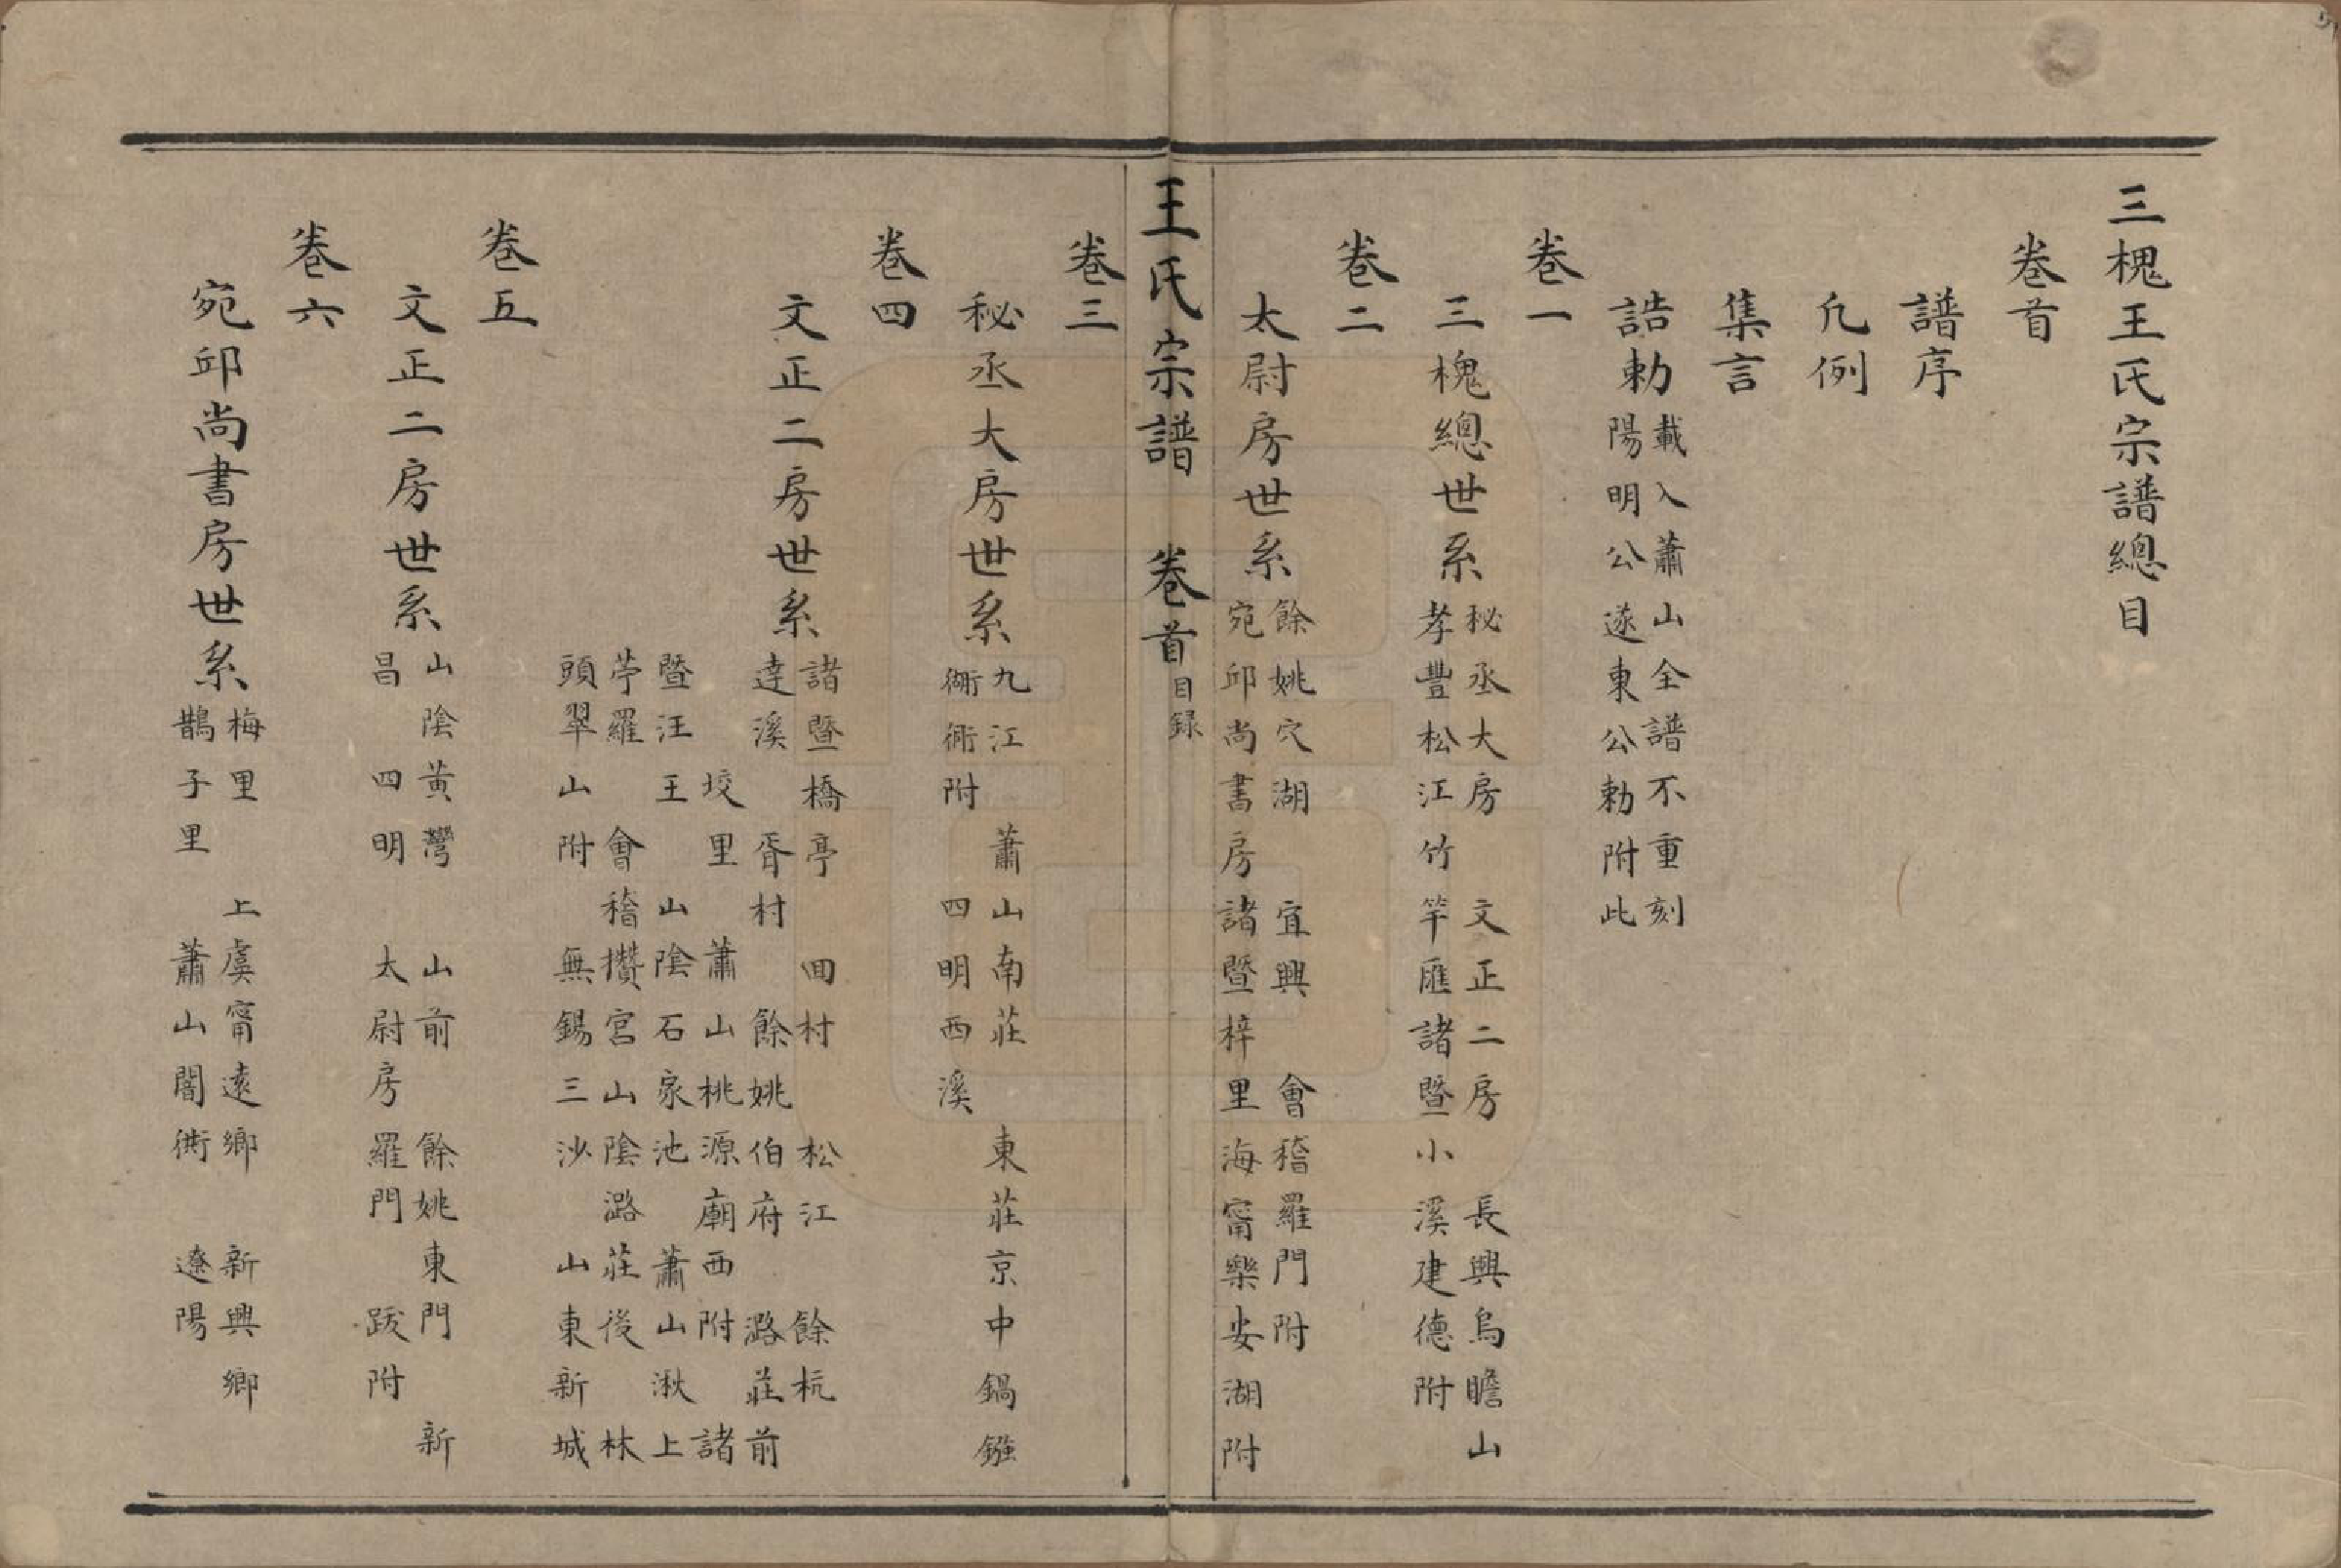 三槐王氏宗譜總目
卷首
譜序
凡例
集言
誥勅
載入蕭山全譜不重刻
陽明公遼東公勅附此
卷一
三槐總世系
秘丞大房 文正二房 長興烏瞻山
孝豐松江竹竿匯諸暨小溪建德附
卷二
太尉房世系
餘姚穴湖 宜興 會稽羅門附
宛邱尚書房諸暨梓里海甯樂安湖附
王氏宗譜 卷首 目録
卷三
秘丞大房世系
九江 蕭山南莊 東莊京中鍋鏹
衚衕附 四明西溪
卷四
文正二房世系
諸暨橋亭 田村 松江 餘杭
達溪 胥村 餘姚伯府 潞莊前
埈里 蕭山桃源廟西附 諸
暨汪王 山陰石家池 蕭山湫上
苧羅 會稽攢宮山陰潞莊後 林
頭翠山附 無錫三沙 山東新城
卷五
文正二房世系
山陰黃灣 山前 餘姚東門 新
昌 四明 太尉房羅門 跋附
卷六
宛邱尚書房世系
梅里 上虞甯遠鄉 新興鄉
鵲子里 蕭山闇衖 遼陽